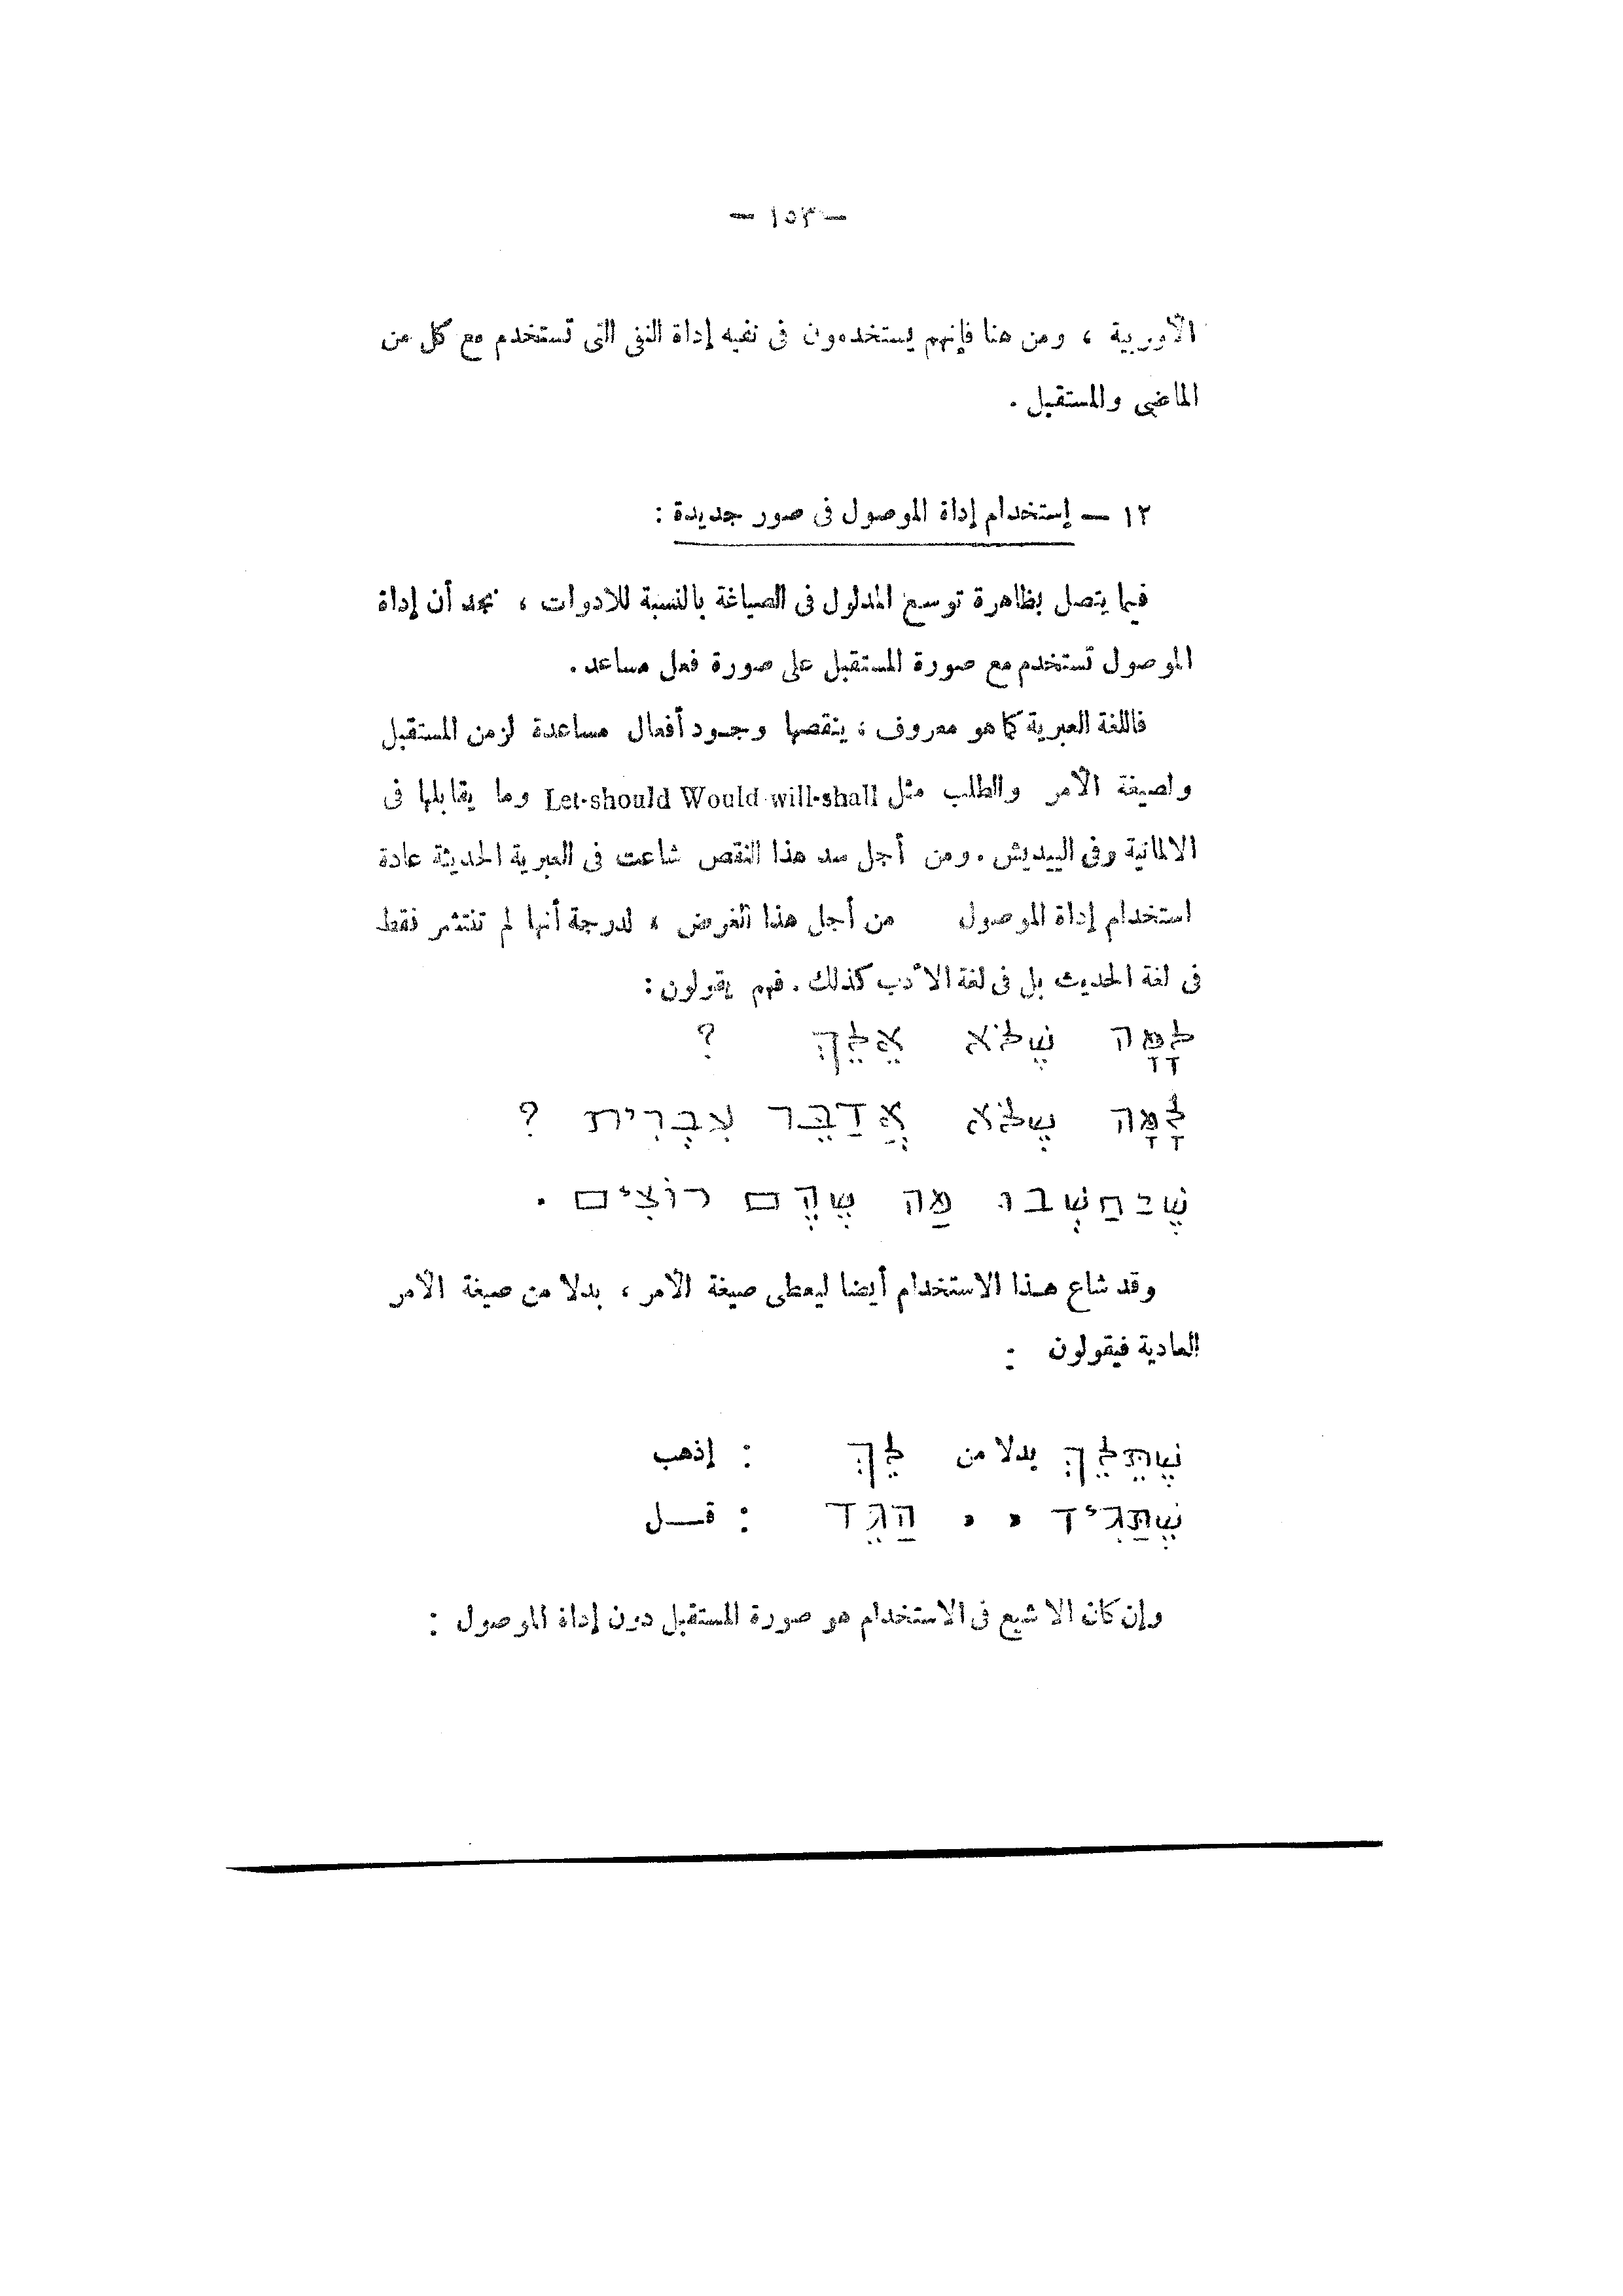 — ١٥٣ —
الأوربية ، ومن هنا فإنهم يستخدمون فى نفيه إداة النفى التى تستخدم مع كل من
الماضى والمستقبل .
١٢ — إستخدام إداة الموصول فى صور جديدة :
فيما يتصل بظاهرة توسع المدلول فى الصياغة بالنسبة للادوات ، نجد أن إداة
الموصول تستخدم مع صورة المستقبل على صورة فعل مساعد .
فاللغة العبرية كما هو معروف ، ينقصها وجود أفعال مساعدة لزمن المستقبل
ولصيغة الأمر والطلب مثل Let-should Would will-shall وما يقابلها فى
الالمانية وفى الييديش . ومن أجل سد هذا النقص شاعت فى العبرية الحديثة عادة
استخدام إداة الموصول من أجل هذا الغرض ، لدرجة أنها لم تنتشر فقط
فى لغة الحديث بل فى لغة الأدب كذلك . فهم يقولون :
לָמָּה שֶׁלֹּא אֵלֵךְ ?
לָמָּה שֶׁלֹּא אֲדַבֵּר עִבְרִית ?
שֶׁיַּחַשְׁבוּ מַה שֶּׁהֵם רוֹצִים .
وقد شاع هذا الاستخدام أيضا ليعطى صيغة الأمر ، بدلا من صيغة الأمر
العادية فيقولون :
שֶׁתֵּלֵךְ بدلا من לֵךְ : إذهب
שֶׁתַּגִּיד » » הַגֵּד : قــل
وإن كان الاشيع فى الاستخدام هو صورة المستقبل دون إداة الموصول :